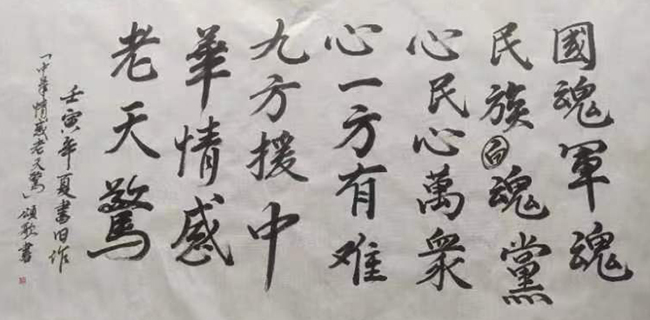 國魂軍魂
民族魂黨
心民心萬衆
心一方有难
九方援中
華情感
老天驚
壬寅年夏書旧作
「中华情感老天驚」頌歌書